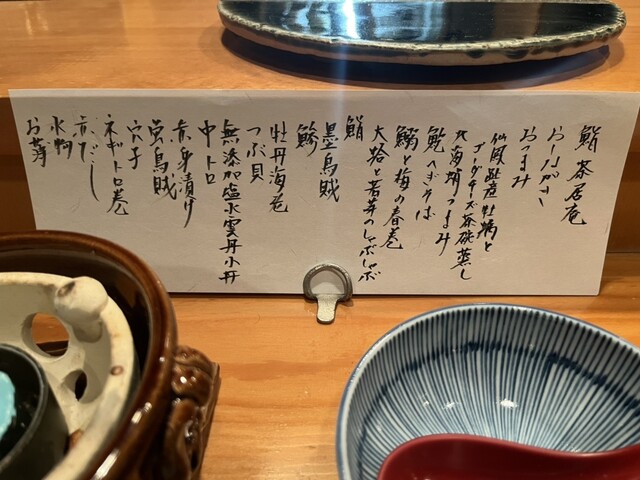 鮨 茶居庵
おしながき
おつまみ
仙鳳趾産牡蠣と
ゴーダチーズ茶碗蒸し
つまみ
鮑へぎそば
鰯と梅の春巻
大蛤と若芽のしゃぶしゃぶ
鮨
墨烏賊
鰺
牡丹海老
つぶ貝
無添加塩水雲丹小丼
中トロ
赤身漬け
蛍烏賊
穴子
ネギトロ巻
赤だし
水物
お薄